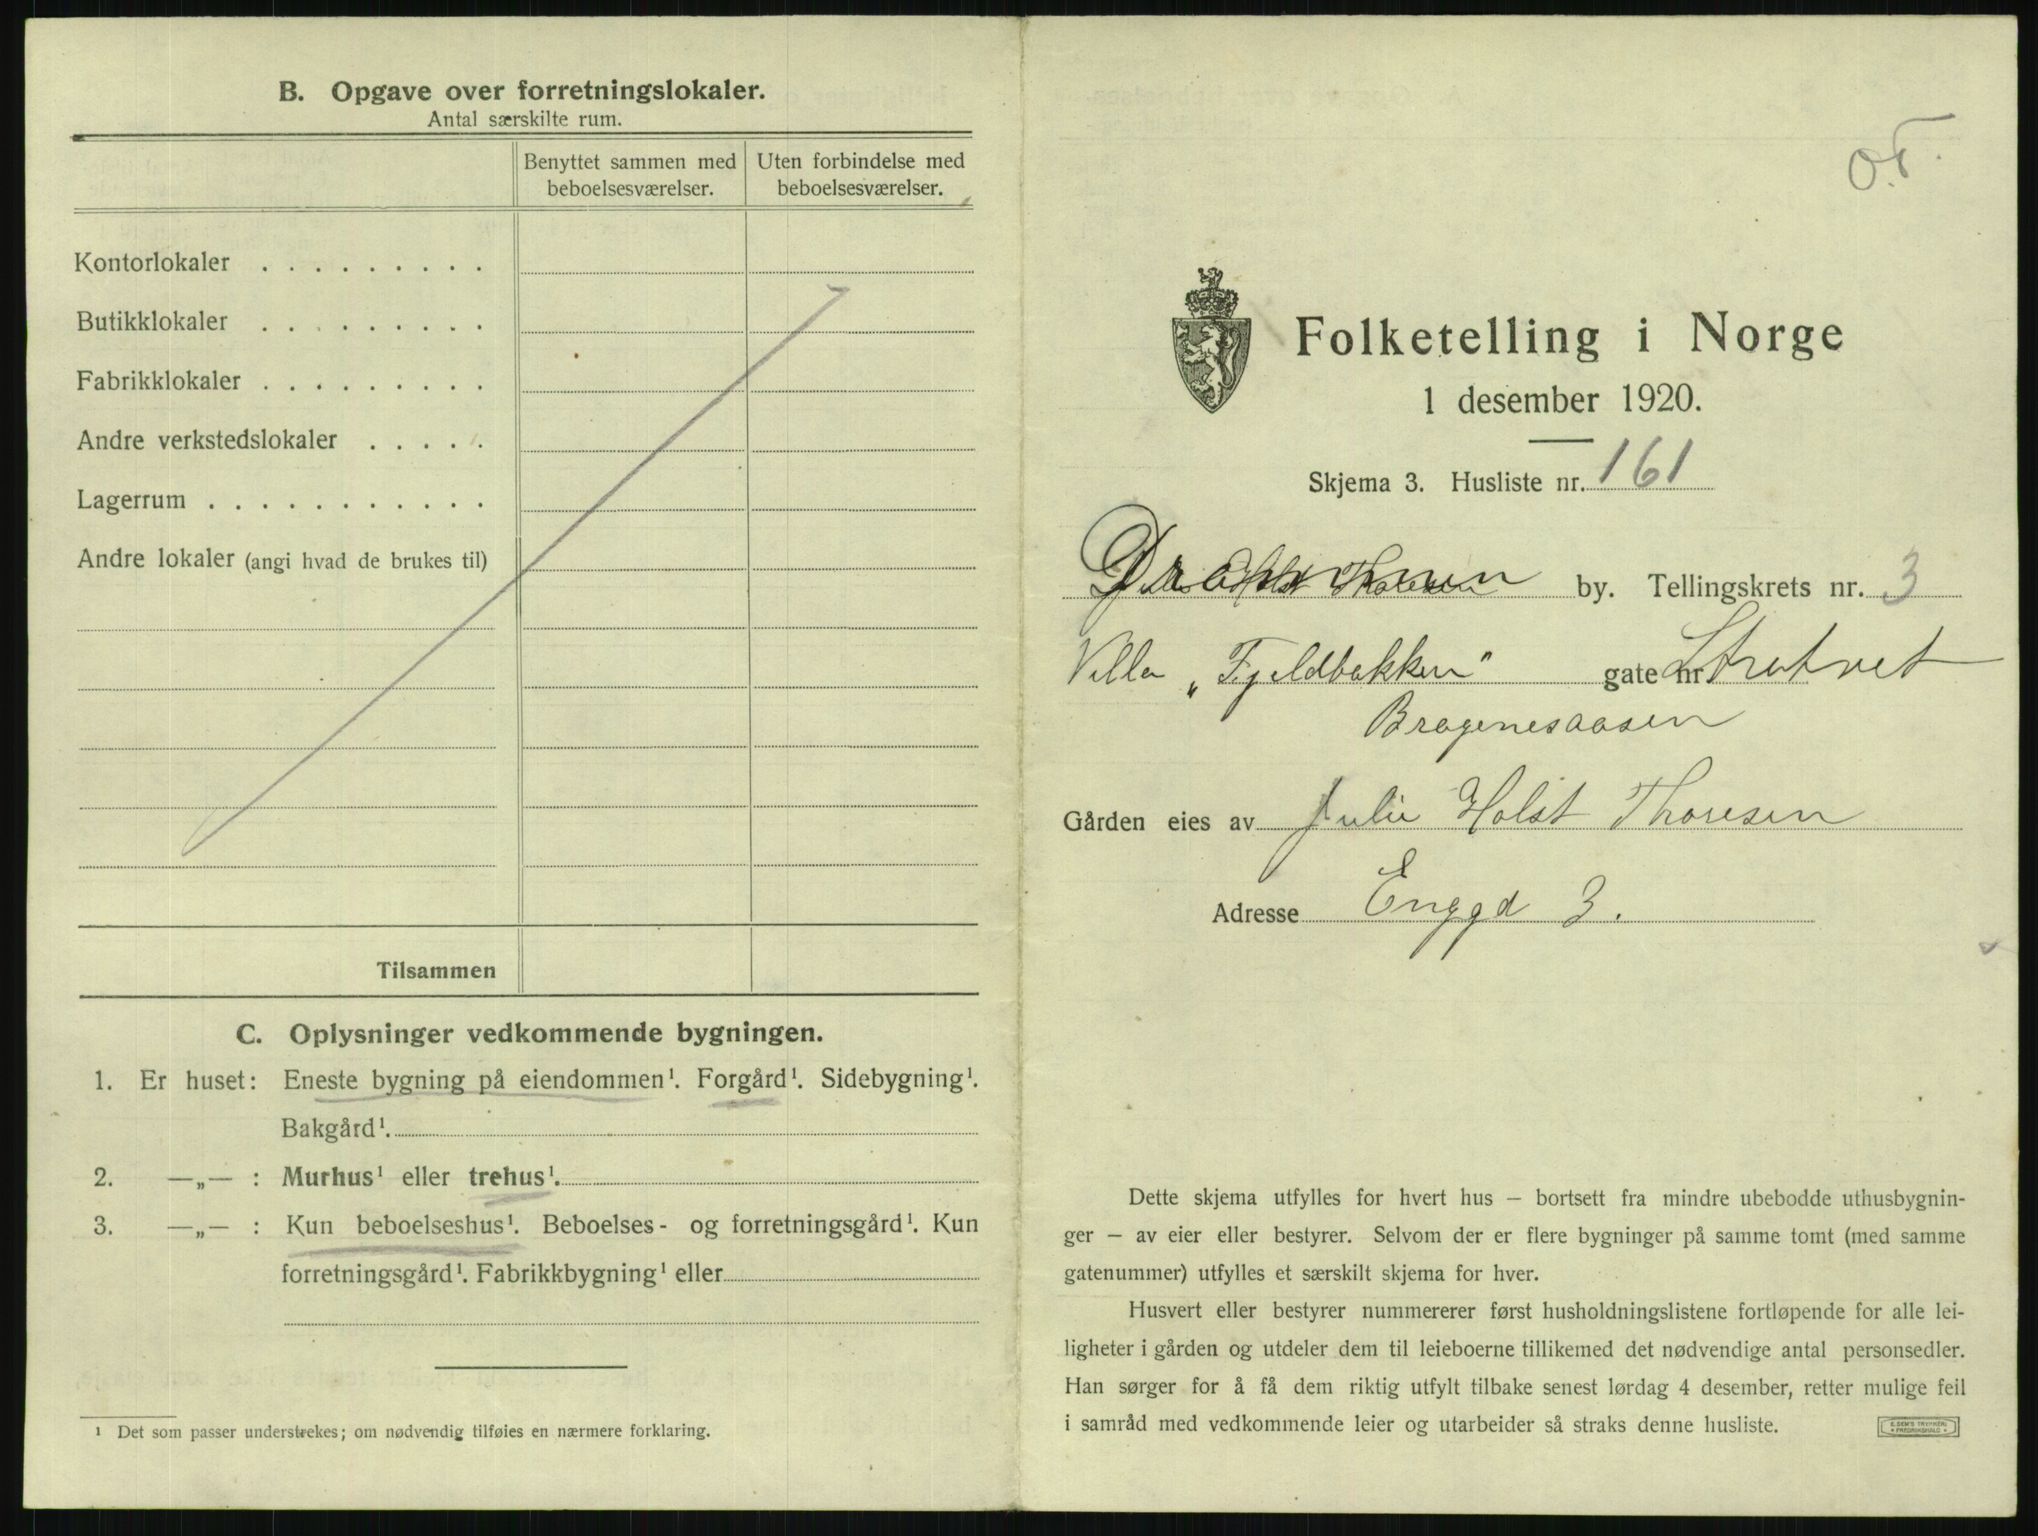 B. Opgave over forretningslokaler.
Antal særskilte rum.
Benyttet sammen med beboelsesværelser.
Uten forbindelse med beboelsesværelser.
Kontorlokaler . . . . . . . . .
Butikklokaler . . . . . . . . .
Fabrikklokaler . . . . . . . . .
Andre verkstedslokaler . . . . .
Lagerrum . . . . . . . . . . .
Andre lokaler (angi hvad de brukes til)
Tilsammen
C. Oplysninger vedkommende bygningen.
1. Er huset: Eneste bygning på eiendommen¹. Forgård¹. Sidebygning¹.
Bakgård¹.
2. —„— : Murhus¹ eller trehus¹.
3. —„— : Kun beboelseshus¹. Beboelses- og forretningsgård¹. Kun
forretningsgård¹. Fabrikkbygning¹ eller
¹ Det som passer understrekes; om nødvendig tilføies en nærmere forklaring.
Folketelling i Norge
1 desember 1920.
Skjema 3. Husliste nr. 161
Drammen by. Tellingskrets nr. 3
Villa „Fjeldbakken" gate nr. Stratvet
Bragenesaasen
Gården eies av Julie Holst Thoresen
Adresse Enggd 3.
Dette skjema utfylles for hvert hus – bortsett fra mindre ubebodde uthusbygnin-
ger – av eier eller bestyrer. Selvom der er flere bygninger på samme tomt (med samme
gatenummer) utfylles et særskilt skjema for hver.
Husvert eller bestyrer nummererer først husholdningslistene fortløpende for alle lei-
ligheter i gården og utdeler dem til leieboerne tillikemed det nødvendige antal personsedler.
Han sørger for å få dem riktig utfylt tilbake senest lørdag 4 desember, retter mulige feil
i samråd med vedkommende leier og utarbeider så straks denne husliste.
E. SEM'S TRYKKERI
FREDRIKSHALD